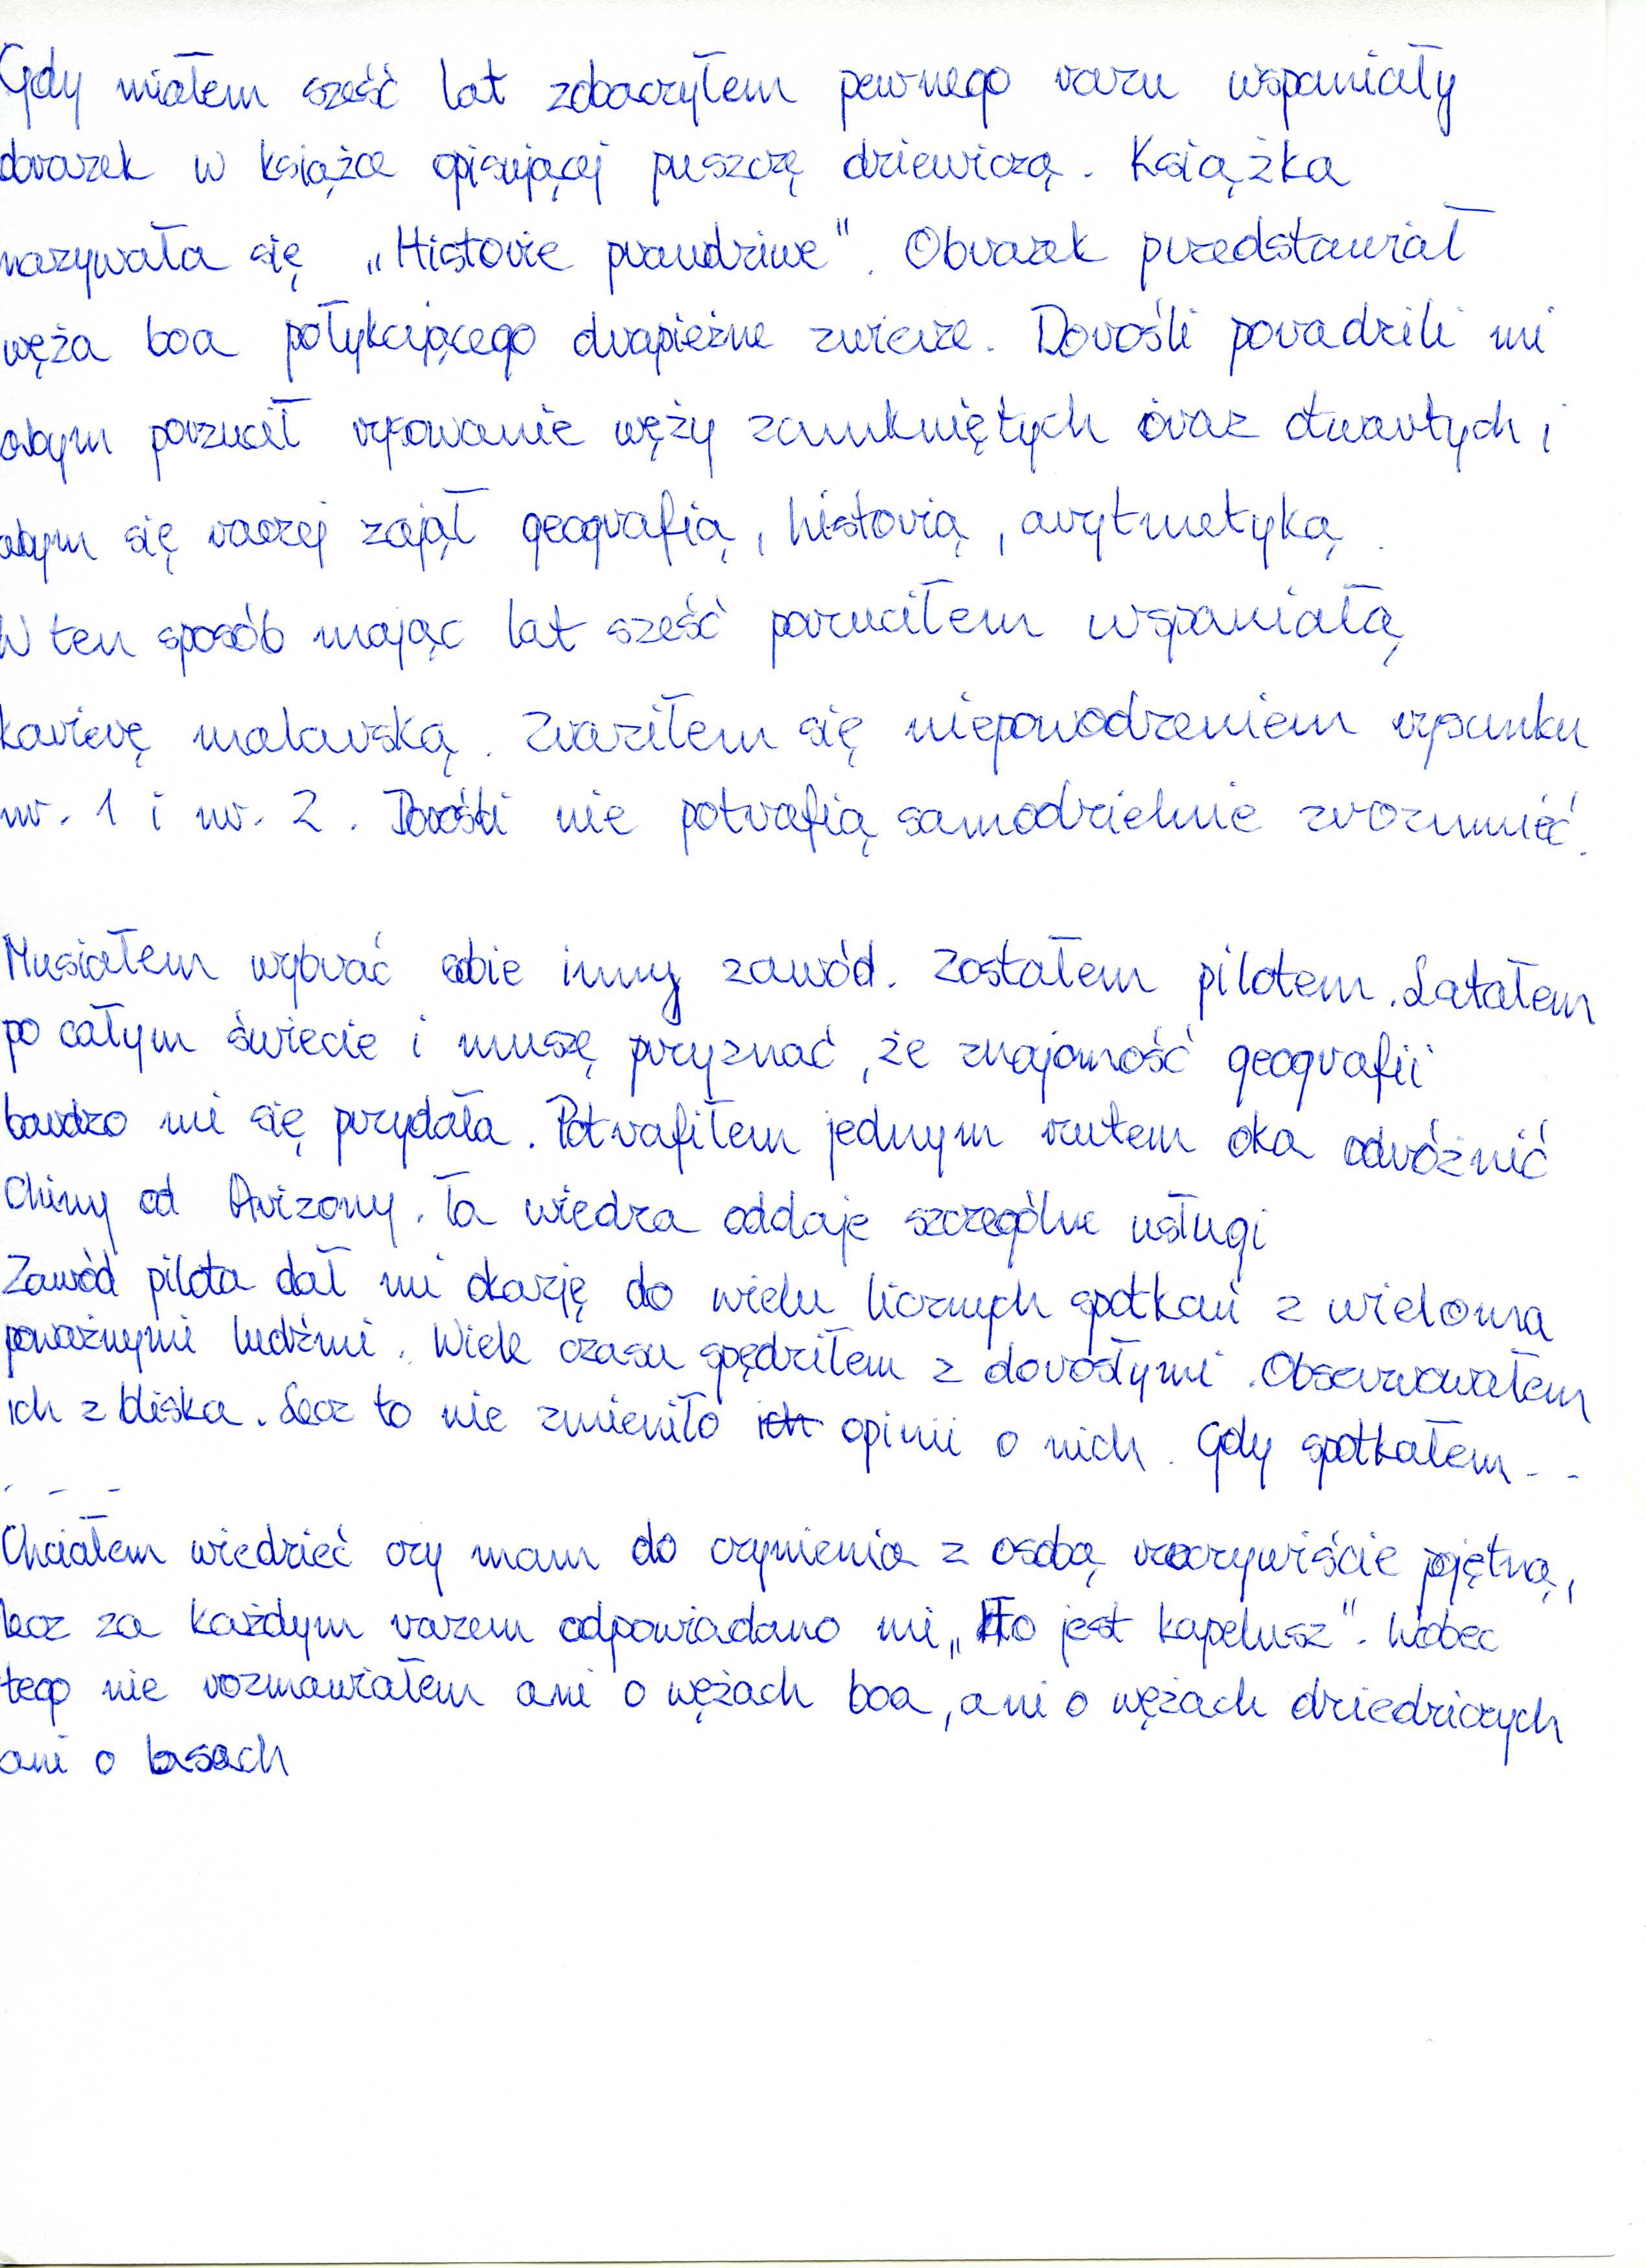 Gdy miałem sześć lat zobaczyłem pewnego razu wspaniały
obrazek w książce opisującej puszczę dziewiczą. Książka
nazywała się „Historie prawdziwe". Obrazek przedstawiał
węża boa połykającego drapieżne zwierze. Dorośli poradzili mi
abym porzucił rysowanie węży zamkniętych oraz otwartych i
abym się raczej zajął geografią, historią, arytmetyką.
W ten sposób mając lat sześć porzuciłem wspaniałą
karierę malarską. Zraziłem się niepowodzeniem rysunku
nr. 1 i nr. 2. Dorośli nie potrafią samodzielnie zrozumieć.
Musiałem wybrać sobie inny zawód. Zostałem pilotem. Latałem
po całym świecie i muszę przyznać, że znajomość geografii
bardzo mi się przydała. Potrafiłem jednym rzutem oka odróżnić
Chiny od Arizony. Ta wiedza oddaje szczególne usługi
Zawód pilota dał mi okazję do wielu licznych spotkań z wieloma
poważnymi ludźmi. Wiele czasu spędziłem z dorosłymi. Obserwowałem
ich z bliska. Lecz to nie zmieniło ich opinii o nich. Gdy spotkałem - -
- - -
Chciałem wiedzieć czy mam do czynienia z osobą rzeczywiście pojętną,
lecz za każdym razem odpowiadano mi „To jest kapelusz". Wobec
tego nie rozmawiałem ani o wężach boa, ani o wężach dziedziczych
ani o lasach